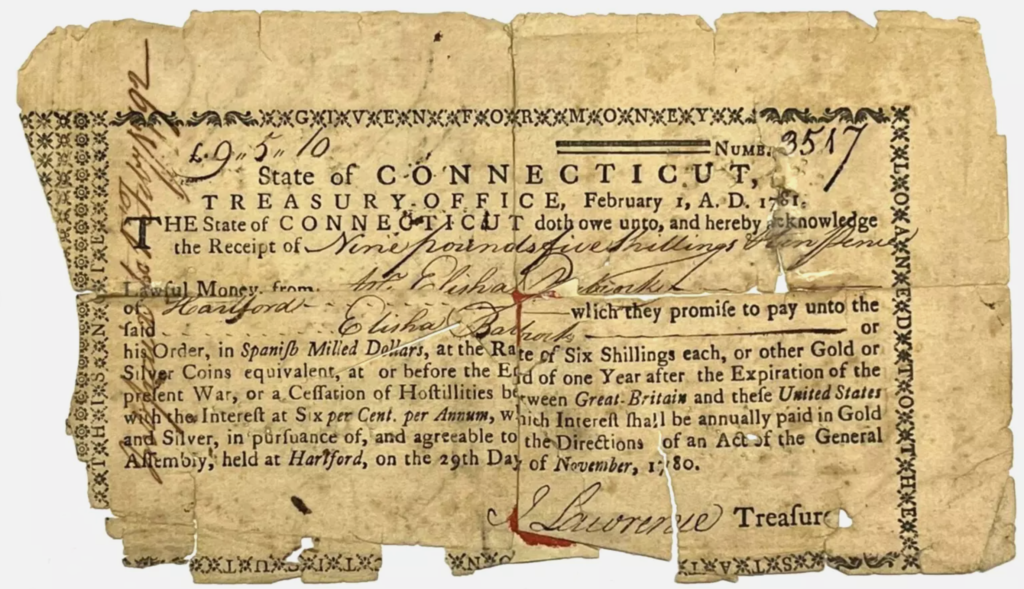 GIVEN FOR MONEY
£9"5"10 NUMB. 3517
State of CONNECTICUT,
TREASURY-OFFICE, February 1, A. D. 1781.
THE State of CONNECTICUT doth owe unto, and hereby acknowledge
the Receipt of Nine pounds five Shillings & ten Pence
Lawful Money, from Mr. Elisha Babcock
of Hartford which they promise to pay unto the
ſaid Elisha Babcock or
his Order, in Spaniſh Milled Dollars, at the Rate of Six Shillings each, or other Gold or
Silver Coins equivalent, at or before the End of one Year after the Expiration of the
preſent War, or a Ceſſation of Hoſtillities between Great-Britain and theſe United States
with the Intereſt at Six per Cent. per Annum, which Intereſt ſhall be annually paid in Gold
and Silver, in purſuance of, and agreeable to the Directions of an Act of the General
Aſſembly, held at Hartford, on the 29th Day of November, 1780.
J Lawrence Treaſure
LOANED TO THE
STA
N
TIS UT
THIS IN N TIE